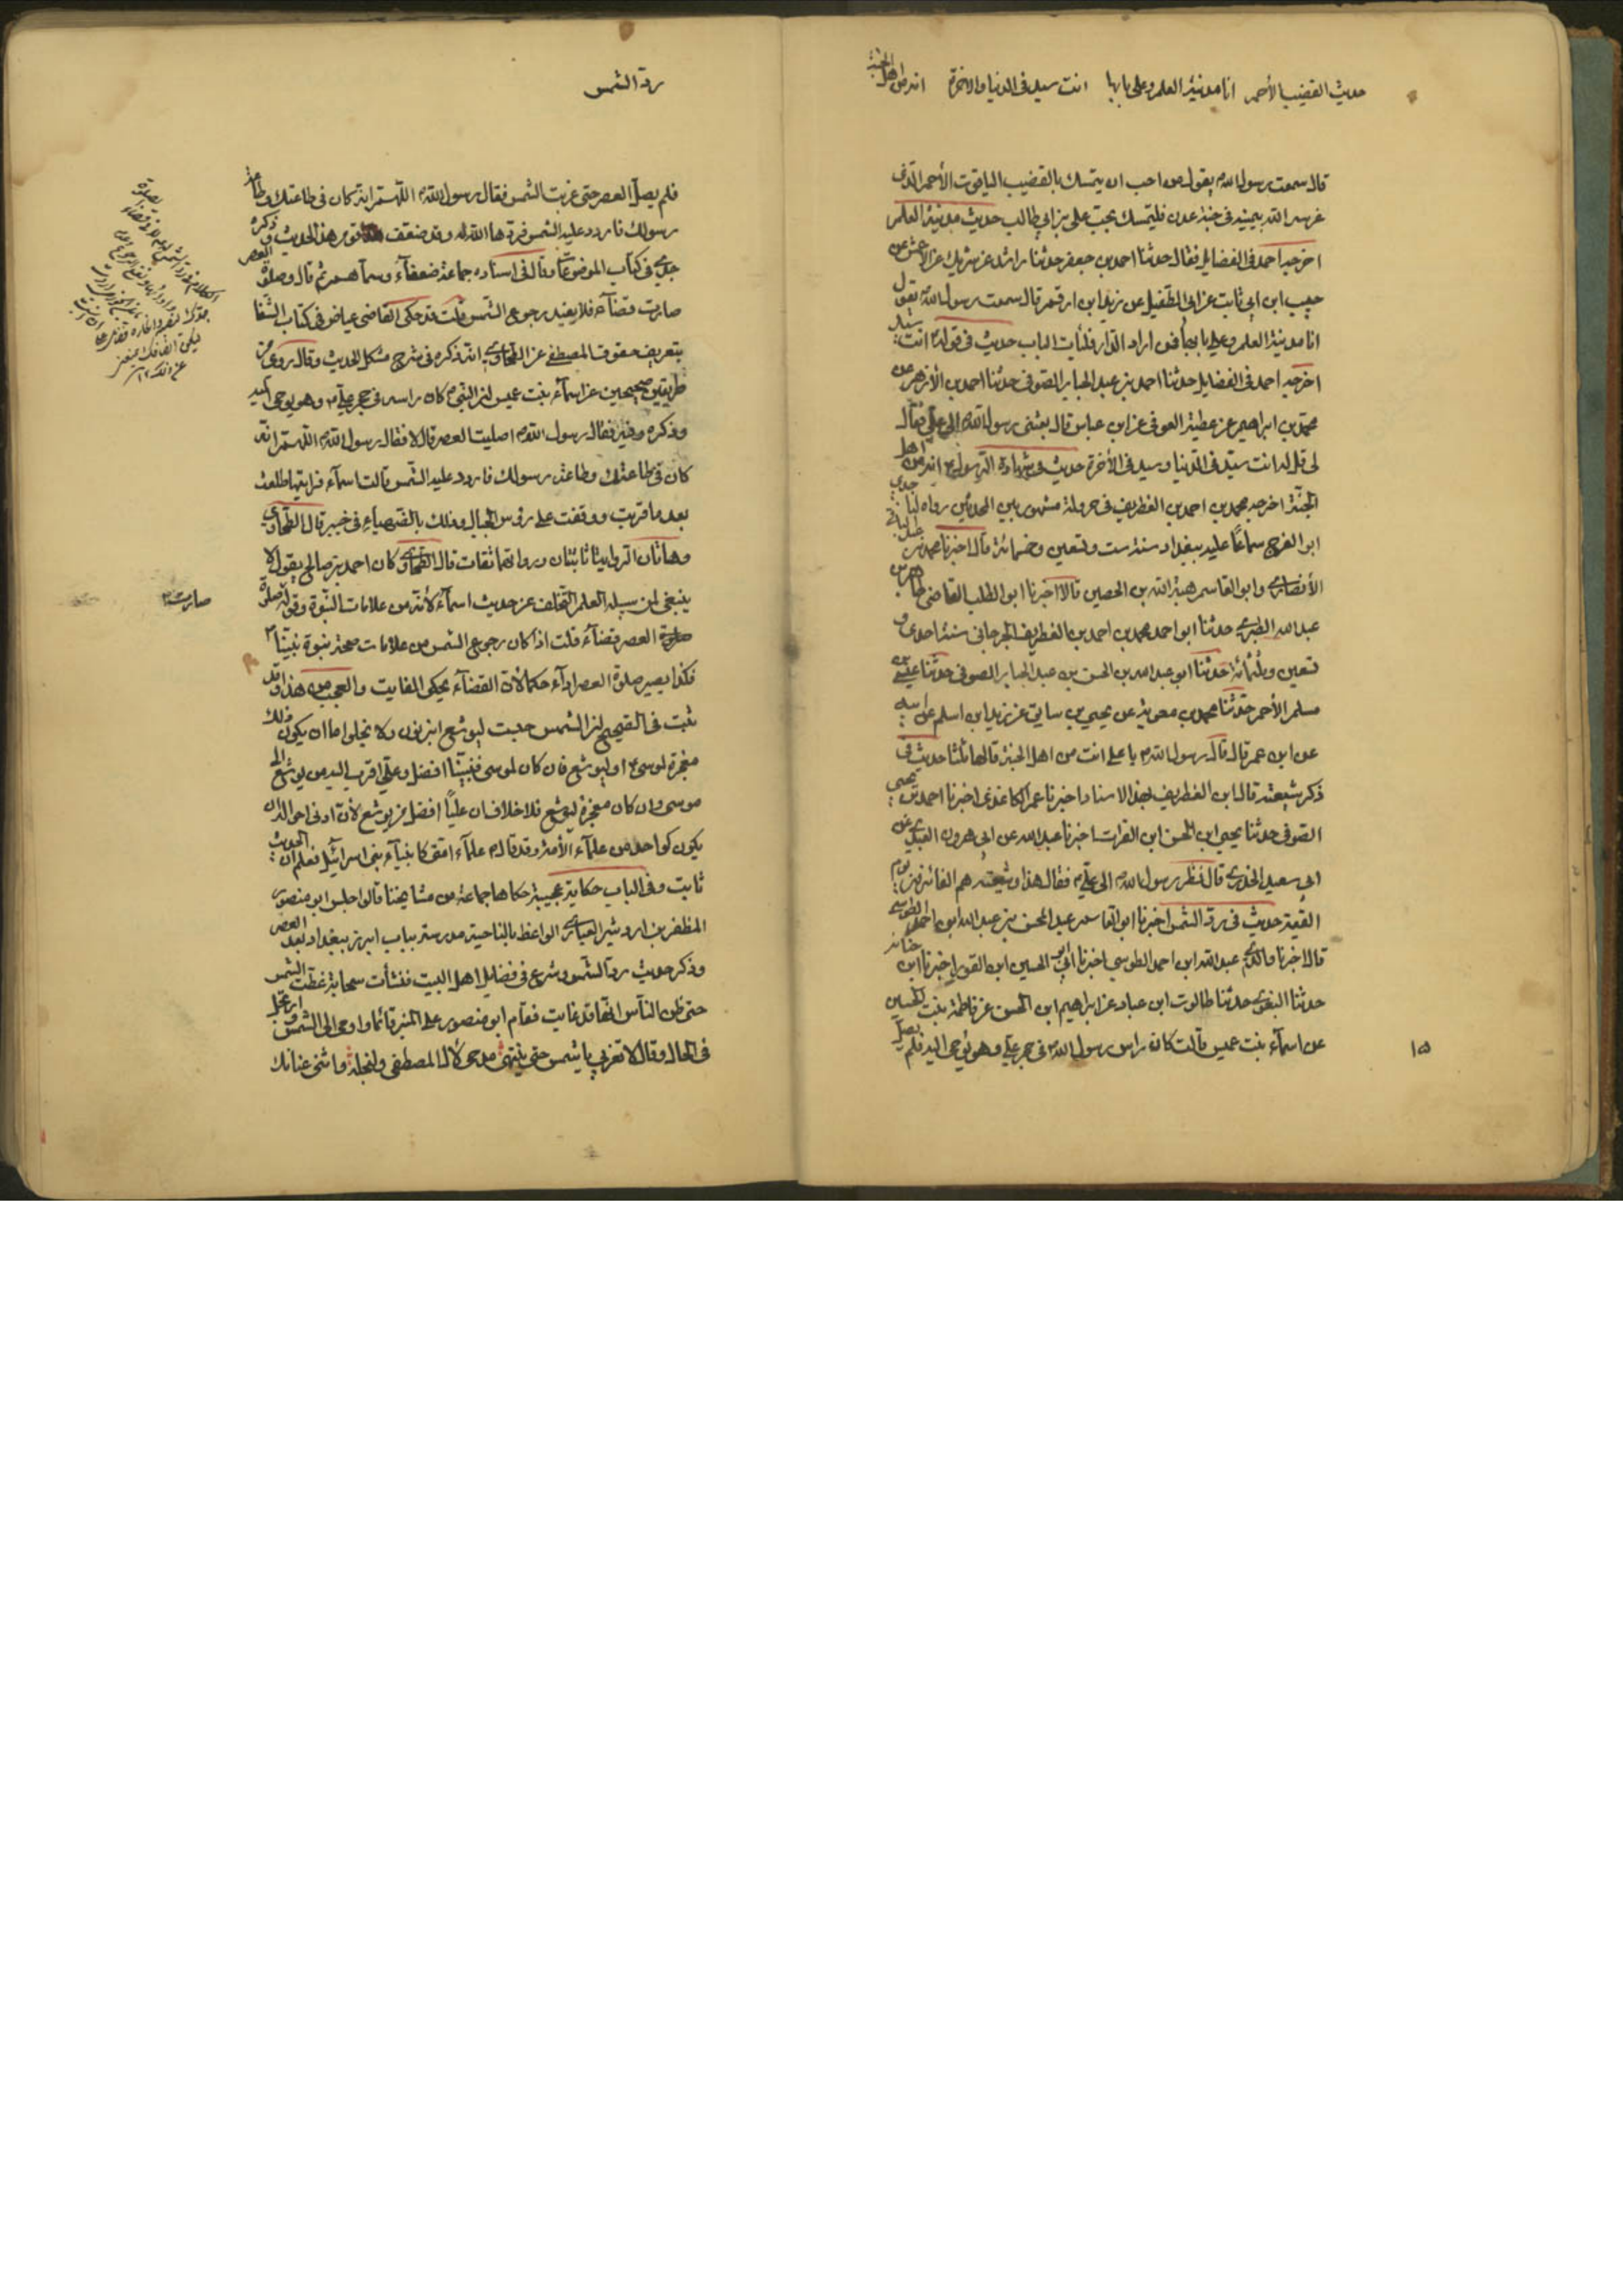 حديث القضيب الأحمر انا مدينة العلم وعلى بابها انت سيد فى الدنيا والآخرة انه من اهل الجنة
قال سمعت رسول الله ص يقول من احب ان يتمسك بالقضيب الياقوت الأحمر الذى
غرسه الله بيمينه فى جنة عدن فليتمسك بحب على بن ابى طالب حديث مدينة العلم
اخرجه احمد فى الفضايل فقال حدثنا احمد بن جعفر حدثنا عن شريك عن الأعمش عن
حبيب ابن ابى ثابت عن ابى الطفيل عن زيد ابن ارقم قال سمعت رسول الله يقول
انا مدينة العلم وعلى بابها فمن اراد الدار فليأت الباب حديث فى قوله انت سيد
اخرجه احمد فى الفضايل حدثنا احمد بن عبد الجبار الصوفى حدثنا احمد بن الأزهر عن
محمد بن ابراهيم عن عطية العوفى عن ابن عباس قال بعثنى رسول الله ص الى على فقال
لى قل له انت سيد فى الدنيا وسيد فى الآخرة حديث فى شهادة الرسول ص انه من اهل
الجنة اخرجه محمد بن احمد بن الغطريف فى جزء له مشهور بين المحدثين رواه لنا جدى
ابو الفرج سماعًا عليه ببغداد سنة ست وتسعين وخمسمائة قال اخبرنا محمد بن عبد الباقى
الأنصارى وابو القاسم هبة الله بن الحصين قالا اخبرنا ابو الطيب القاضى طاهر بن
عبد الله الطبرى حدثنا ابو احمد محمد بن احمد بن الغطريف الجرجانى سنة احدى و
تسعين وثلثمائة حدثنا ابو عبد الله بن الحسن بن عبد الجبار الصوفى حدثنا عيسى بن
مسلم الأحمر حدثنا محمد بن معوية عن يحيى بن سابق عن زيد ابن اسلم عن ابيه
عن ابن عمر قال قال رسول الله ص يا على انت من اهل الجنة قالها ثلثا حديث فى
ذكر شيعته قال ابن الغطريف بهذا الاسناد اخبرنا عمر الكاغذى اخبرنا احمد بن يحيى
الصوفى حدثنا يحيى ابن الحسن ابن الفرات اخبرنا عبد الله عن ابى هرون العبدى عن
ابى سعيد الخدرى قال نظر رسول الله ص الى على ع فقال هذا وشيعته هم الفائزون يوم
القيمة حديث فى رد الشمس اخبرنا ابو القاسم عبد المحسن بن عبد الله ابن احمد الطوسى
قال اخبرنا والدى عبد الله ابن احمد الطوسى اخبرنا ابو الحسين ابن النقور اخبرنا ابن حبابة
حدثنا البغوى حدثنا طالوت ابن عباد عن ابراهيم ابن الحسن عن فاطمة بنت الحسين
عن اسمآء بنت عميس قالت كان راس رسول الله ص فى حجر على وهو يوحى اليه فلم يصل
١٥
رد الشمس
فلم يصل العصر حتى غربت الشمس فقال رسول الله ص اللهم انه كان فى طاعتك وطاعة
رسولك فاردد عليه الشمس فردها الله له وقد ضعف قوم هذا الحديث وذكره
جدى فى كتاب الموضوعات وقال فى اسناده جماعة ضعفآء وسماهم ثم قال وصلوة العصر
صارت قضآء فلا يفيد رجوع الشمس قلت قد حكى القاضى عياض فى كتاب الشفا
بتعريف حقوق المصطفى عن الطحاوى انه ذكره فى شرح مشكل الحديث وقال روى من
طريقين صحيحين عن اسمآء بنت عميس ان النبى ص كان راسه فى حجر على ع وهو يوحى اليه
وذكره وفيه فقال رسول الله ص اصليت العصر قال لا فقال رسول الله ص اللهم انه
كان فى طاعتك وطاعة رسولك فاردد عليه الشمس قالت اسمآء فرايتها طلعت
بعد ما غربت ووقفت على رؤس الجبال وذلك بالصهبآء فى خيبر قال الطحاوى
وهاتان الروايتان ثابتتان ورواتهما ثقات قال الطحاوى وكان احمد بن صالح يقول لا
ينبغى لمن سبيله العلم التخلف عن حديث اسمآء لأنه من علامات النبوة وقوله صلوة
العصر قضآء قلت اذا كان رجوع الشمس من علامات صحة نبوة نبينا
صارت
فكذا يصير صلوة العصر ادآء حكما لأن القضآء يحكى الفايت والعجب من هذا وقد
ثبت فى الصحيح ان الشمس حبست ليوشع ابن نون ولا يخلوا اما ان يكون ذلك
معجزة لموسى او ليوشع فان كان لموسى فنبينا افضل وعلى اقرب اليه من يوشع الى
موسى وان كان معجزة ليوشع فلا خلاف ان عليًا افضل من يوشع لأن ادنى احواله ان
يكون كواحد من علمآء الأمة وقد قال ص علمآء امتى كانبيآء بنى اسرائيل فعلم ان الحديث
ثابت وفى الباب حكاية عجيبة حكاها جماعة من مشايخنا قالوا جلس ابو منصور
المظفر بن اردشير العبادى الواعظ بالناحية مدرسة بباب ابرز ببغداد بعد العصر
وذكر حديث رد الشمس وشرع فى فضايل اهل البيت فنشأت سحابة غطت الشمس
حتى ظن الناس انها قد غابت فقام ابو منصور على المنبر قائما واومى الى الشمس وارتجل
فى الحال وقال لا تغربى يا شمس حتى ينتهى مدحى لآل المصطفى ولنجله واثنى عنانك